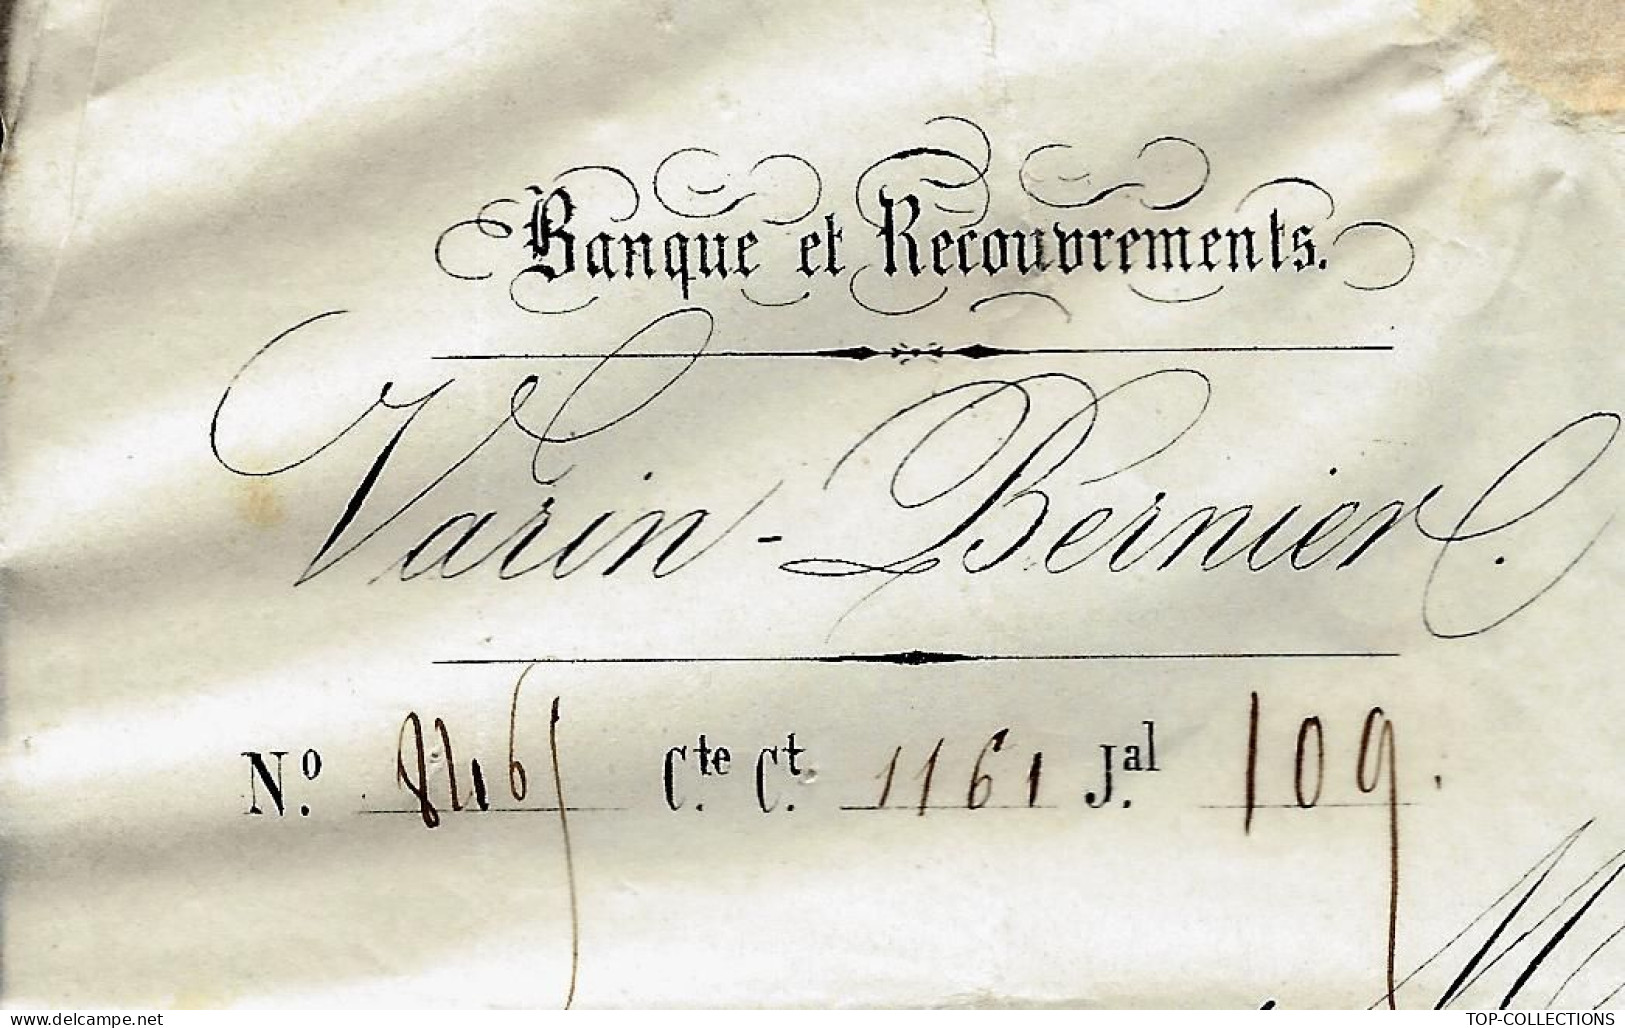 Banque et Recouvrements.
Varin-Bernier.
N.º 8465 Cte. Ct. 1161 Jal. 109.
delcampe.net
TOP-COLLECTIONS